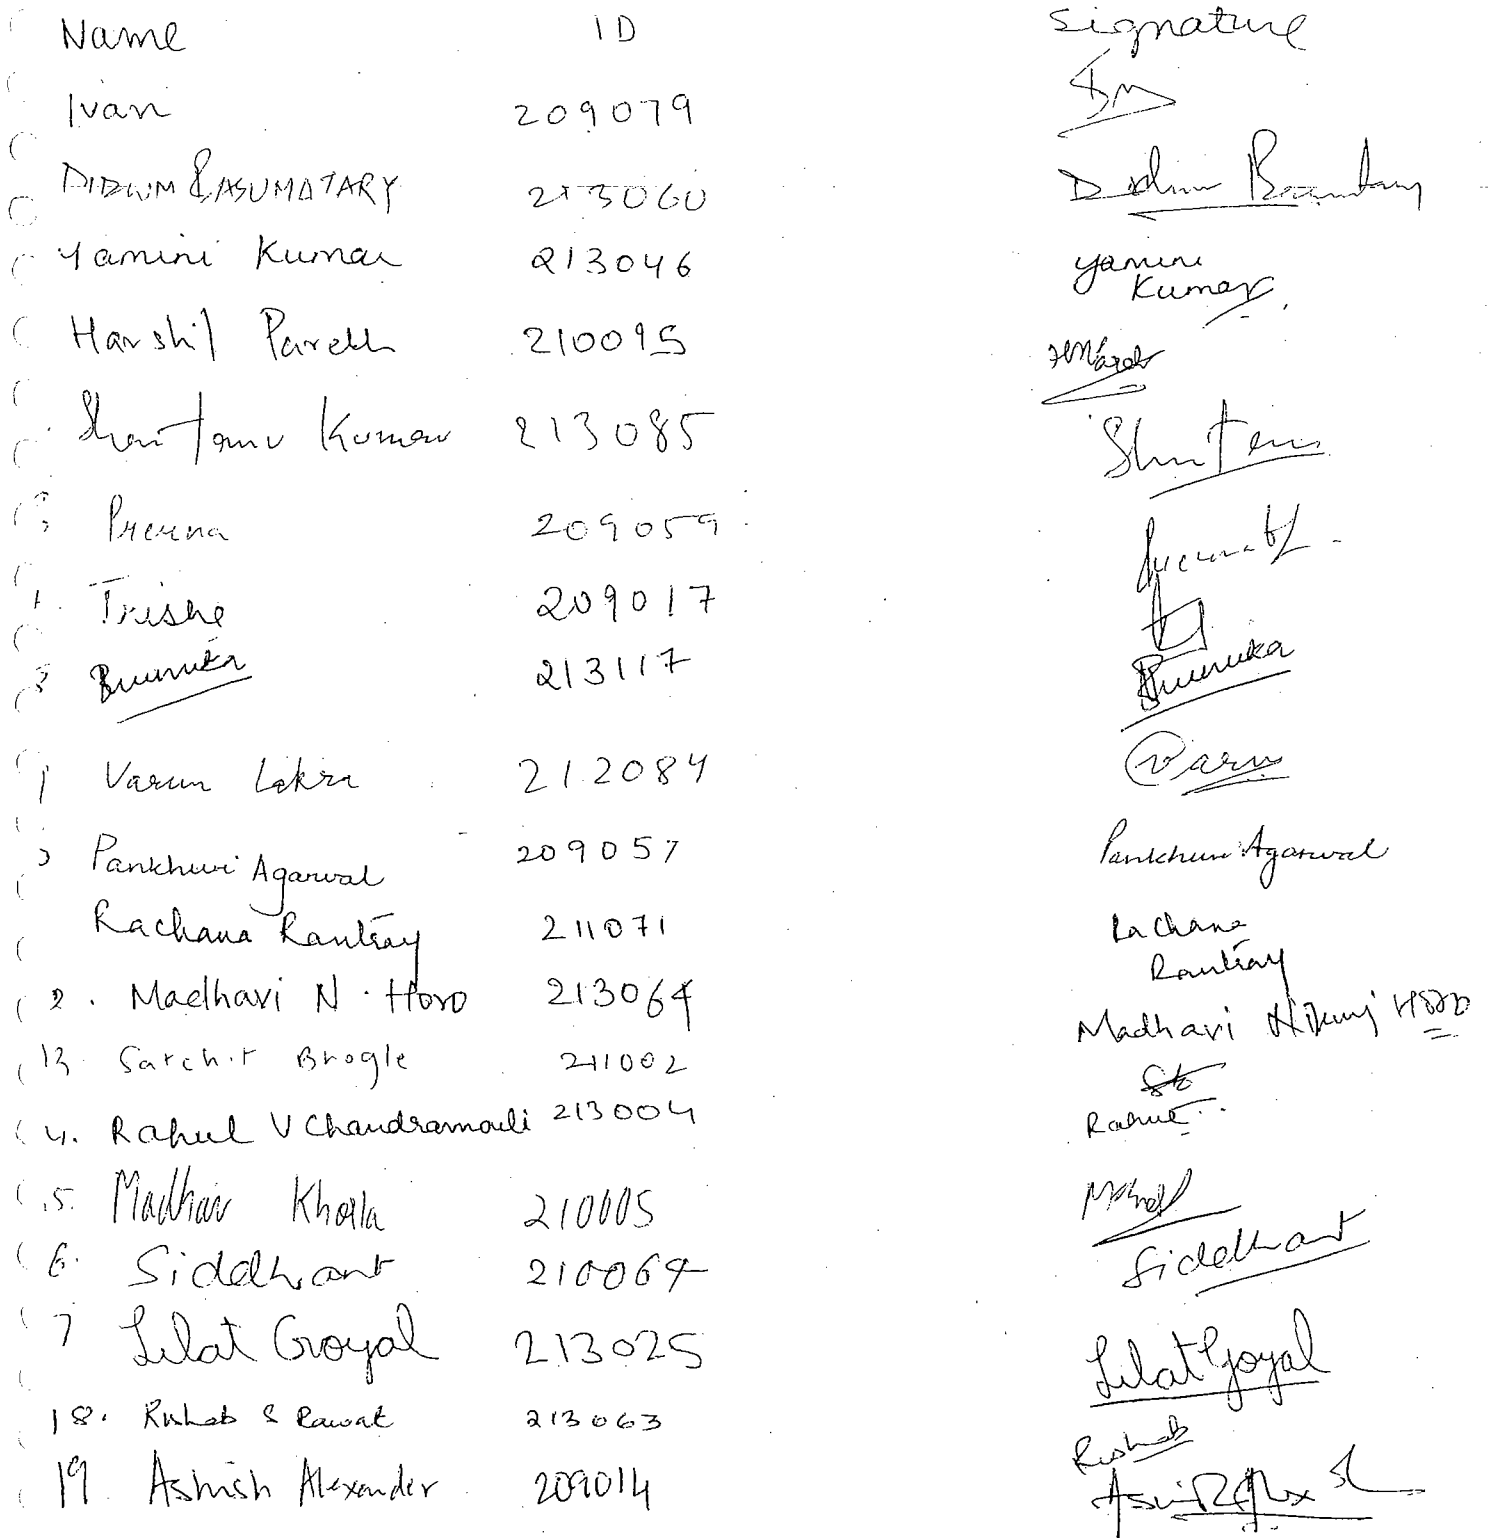 Name ID Signature
Ivan 209079
DIDWM BASUMATARY 213060
Yamini Kumar 213046 Yamini
Kumar
Harshil Parekh 210095
Shantanu Kumar 213085
Prerna 209059
Trishe 209017
213117
Varun Lakra 212084 Varun
Pankhuri Agarwal 209057 Pankhuri Agarwal
Rachana Rautray 211071 Rachana
Rautray
2. Madhavi N. Horo 213064 Madhavi Horo
13. Satchit Bhogle 211002
4. Rahul V Chandramouli 213004 Rahul
5. Madhav Khosla 210005
6. Siddhant 210064 Siddhant
7 Lilat Goyal 213025 Lilat Goyal
18. Rishab S Rawat 213063 Rishab
19. Ashish Alexander 209014